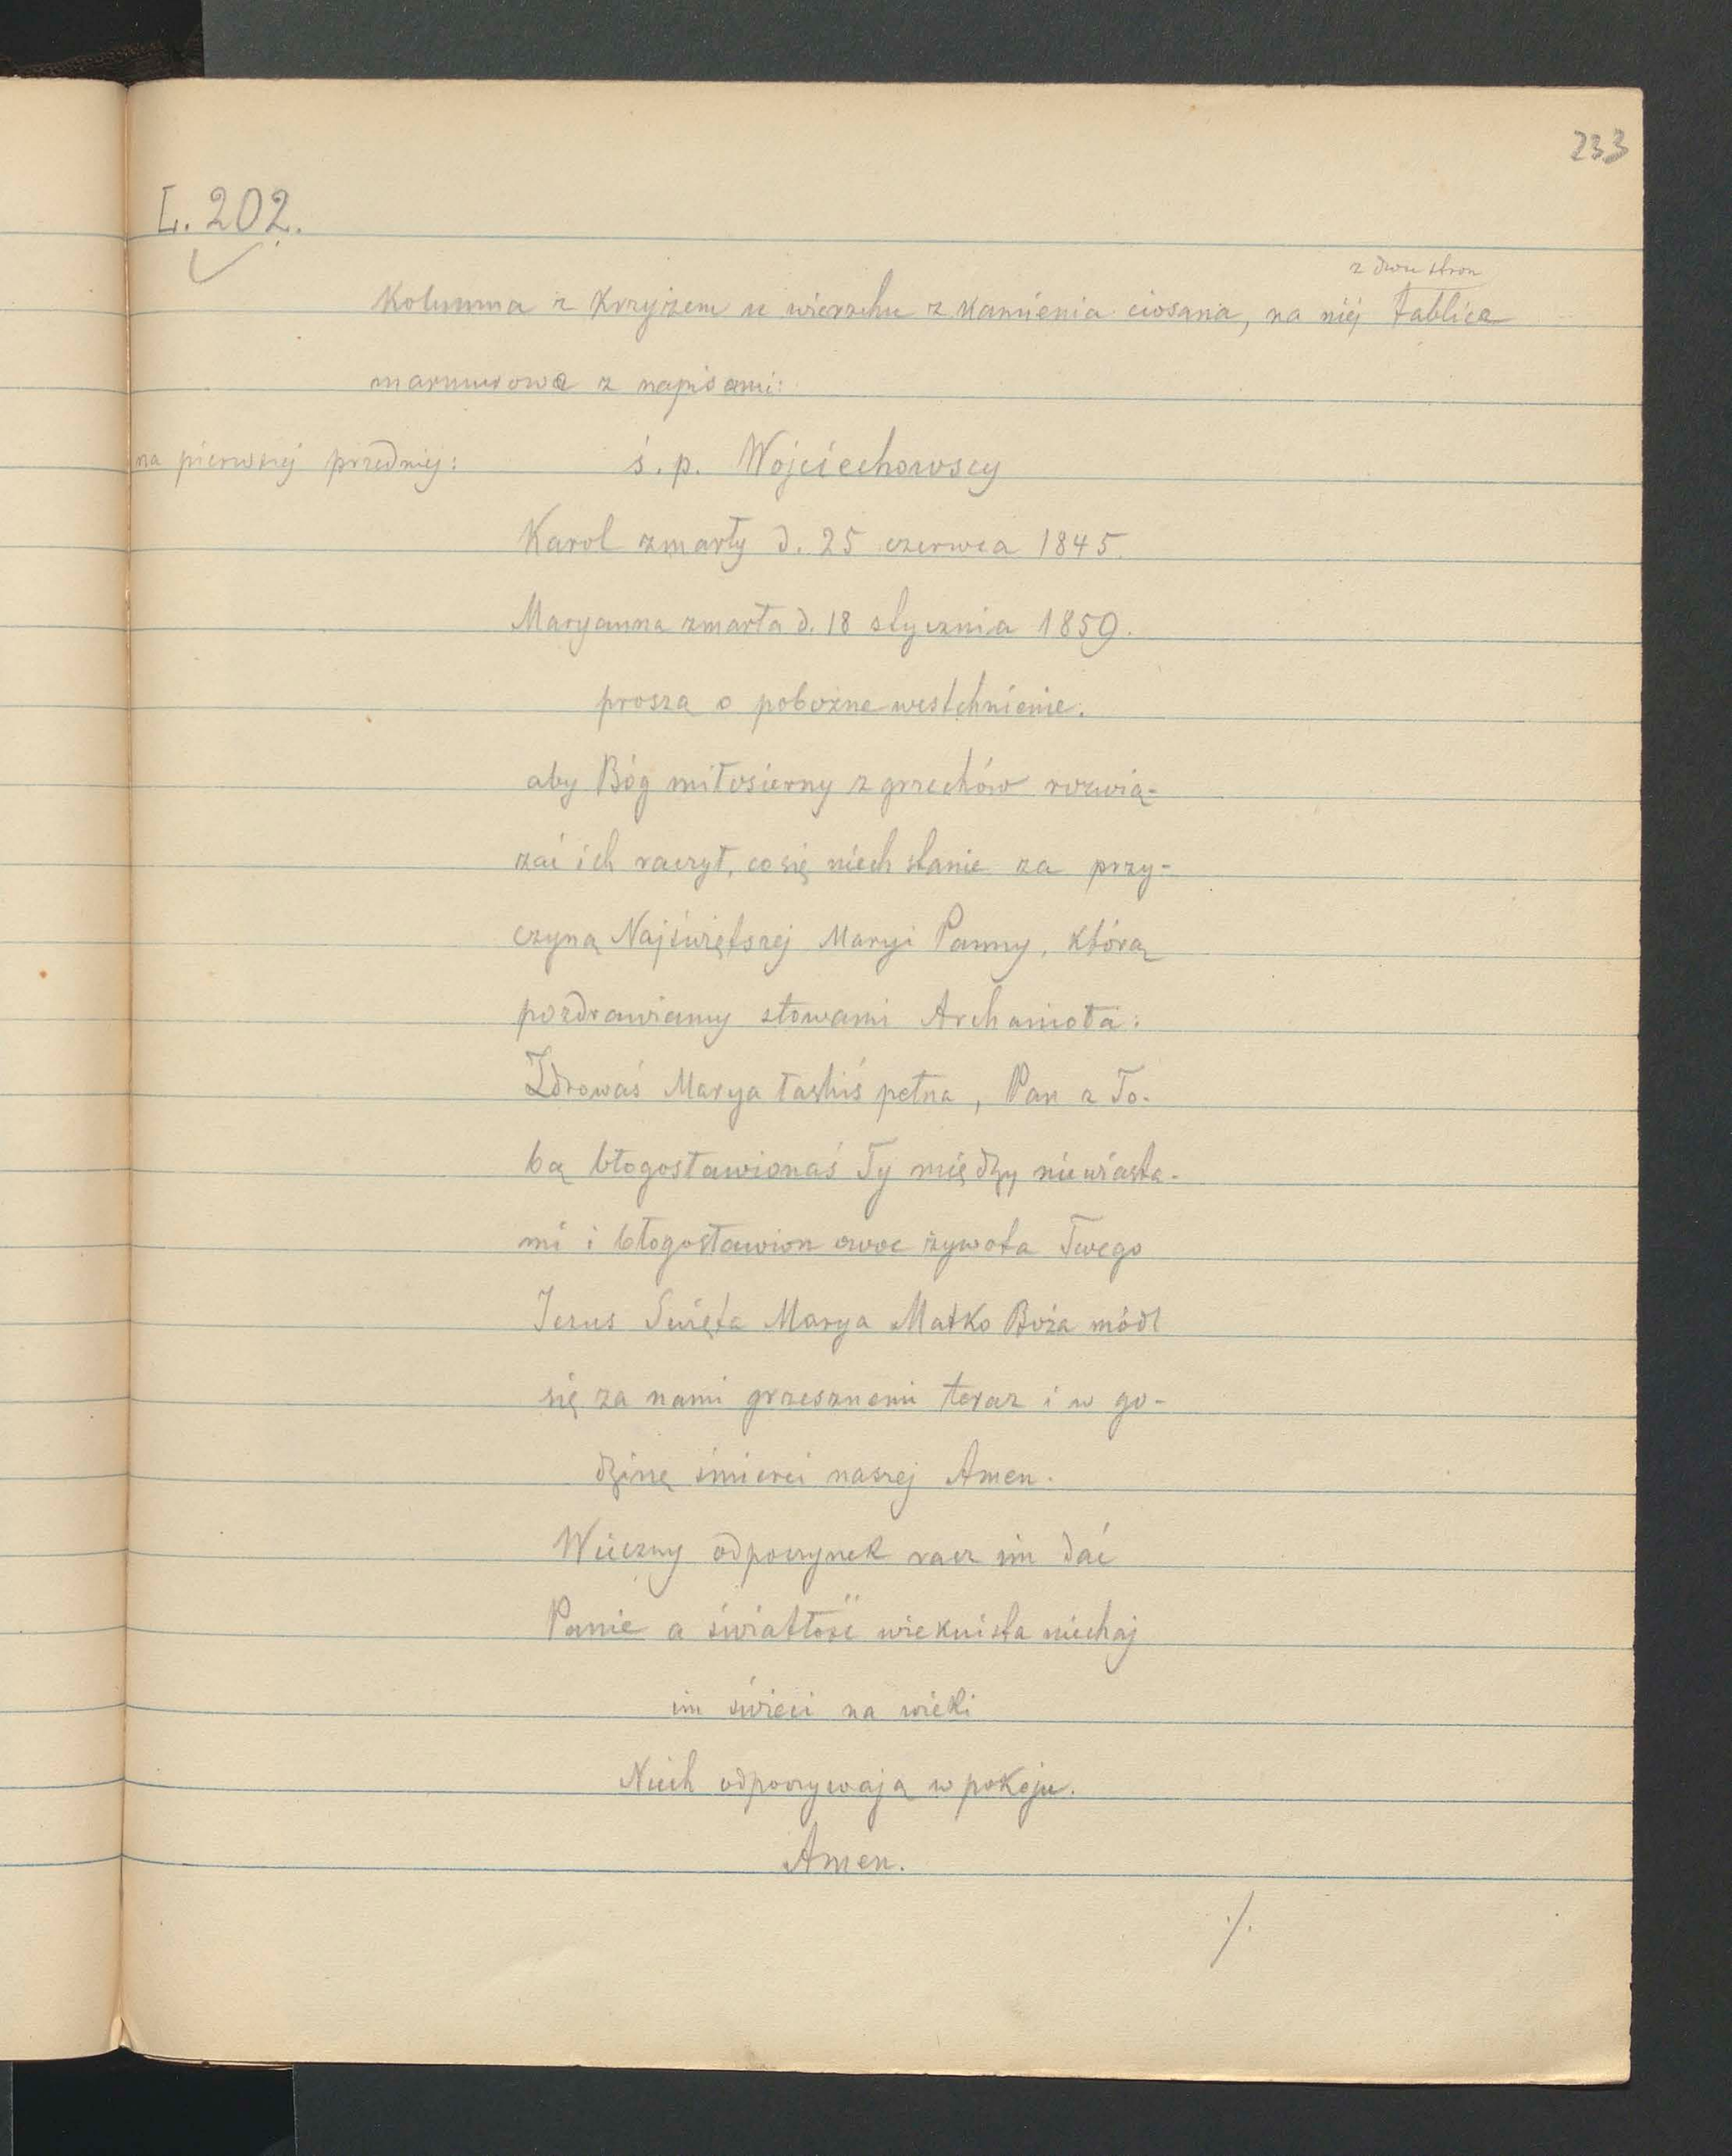 233
L. 202.
z dwu stron
Kolumna z Krzyżem u wierzchu z kamienia ciosana, na niéj tablice
marmurowe z napisami:
na pierwszej przedniej: ś. p. Wojciechowscy
Karol zmarły d. 25 czerwca 1845.
Maryanna zmarła d. 18 stycznia 1859.
proszą o pobożne westchnienie.
aby Bóg miłosierny z grzechów rozwią-
zać ich raczył, co się niech stanie za przy-
czyną Najświętszej Maryi Panny, którą
pozdrawiamy słowami Archanioła:
Zdrowaś Marya łaskiś pełna, Pan z To-
bą błogosławionaś Ty między niewiasta-
mi i błogosławion owoc żywota Twego
Jezus Święta Marya Matko Boża módl
się za nami grzesznemi teraz i w go-
dzinę śmierci naszej Amen.
Wieczny odpoczynek racz im dać
Panie a światłość wiekuista niechaj
im świeci na wieki
Niech odpoczywają w pokoju.
Amen.
./.